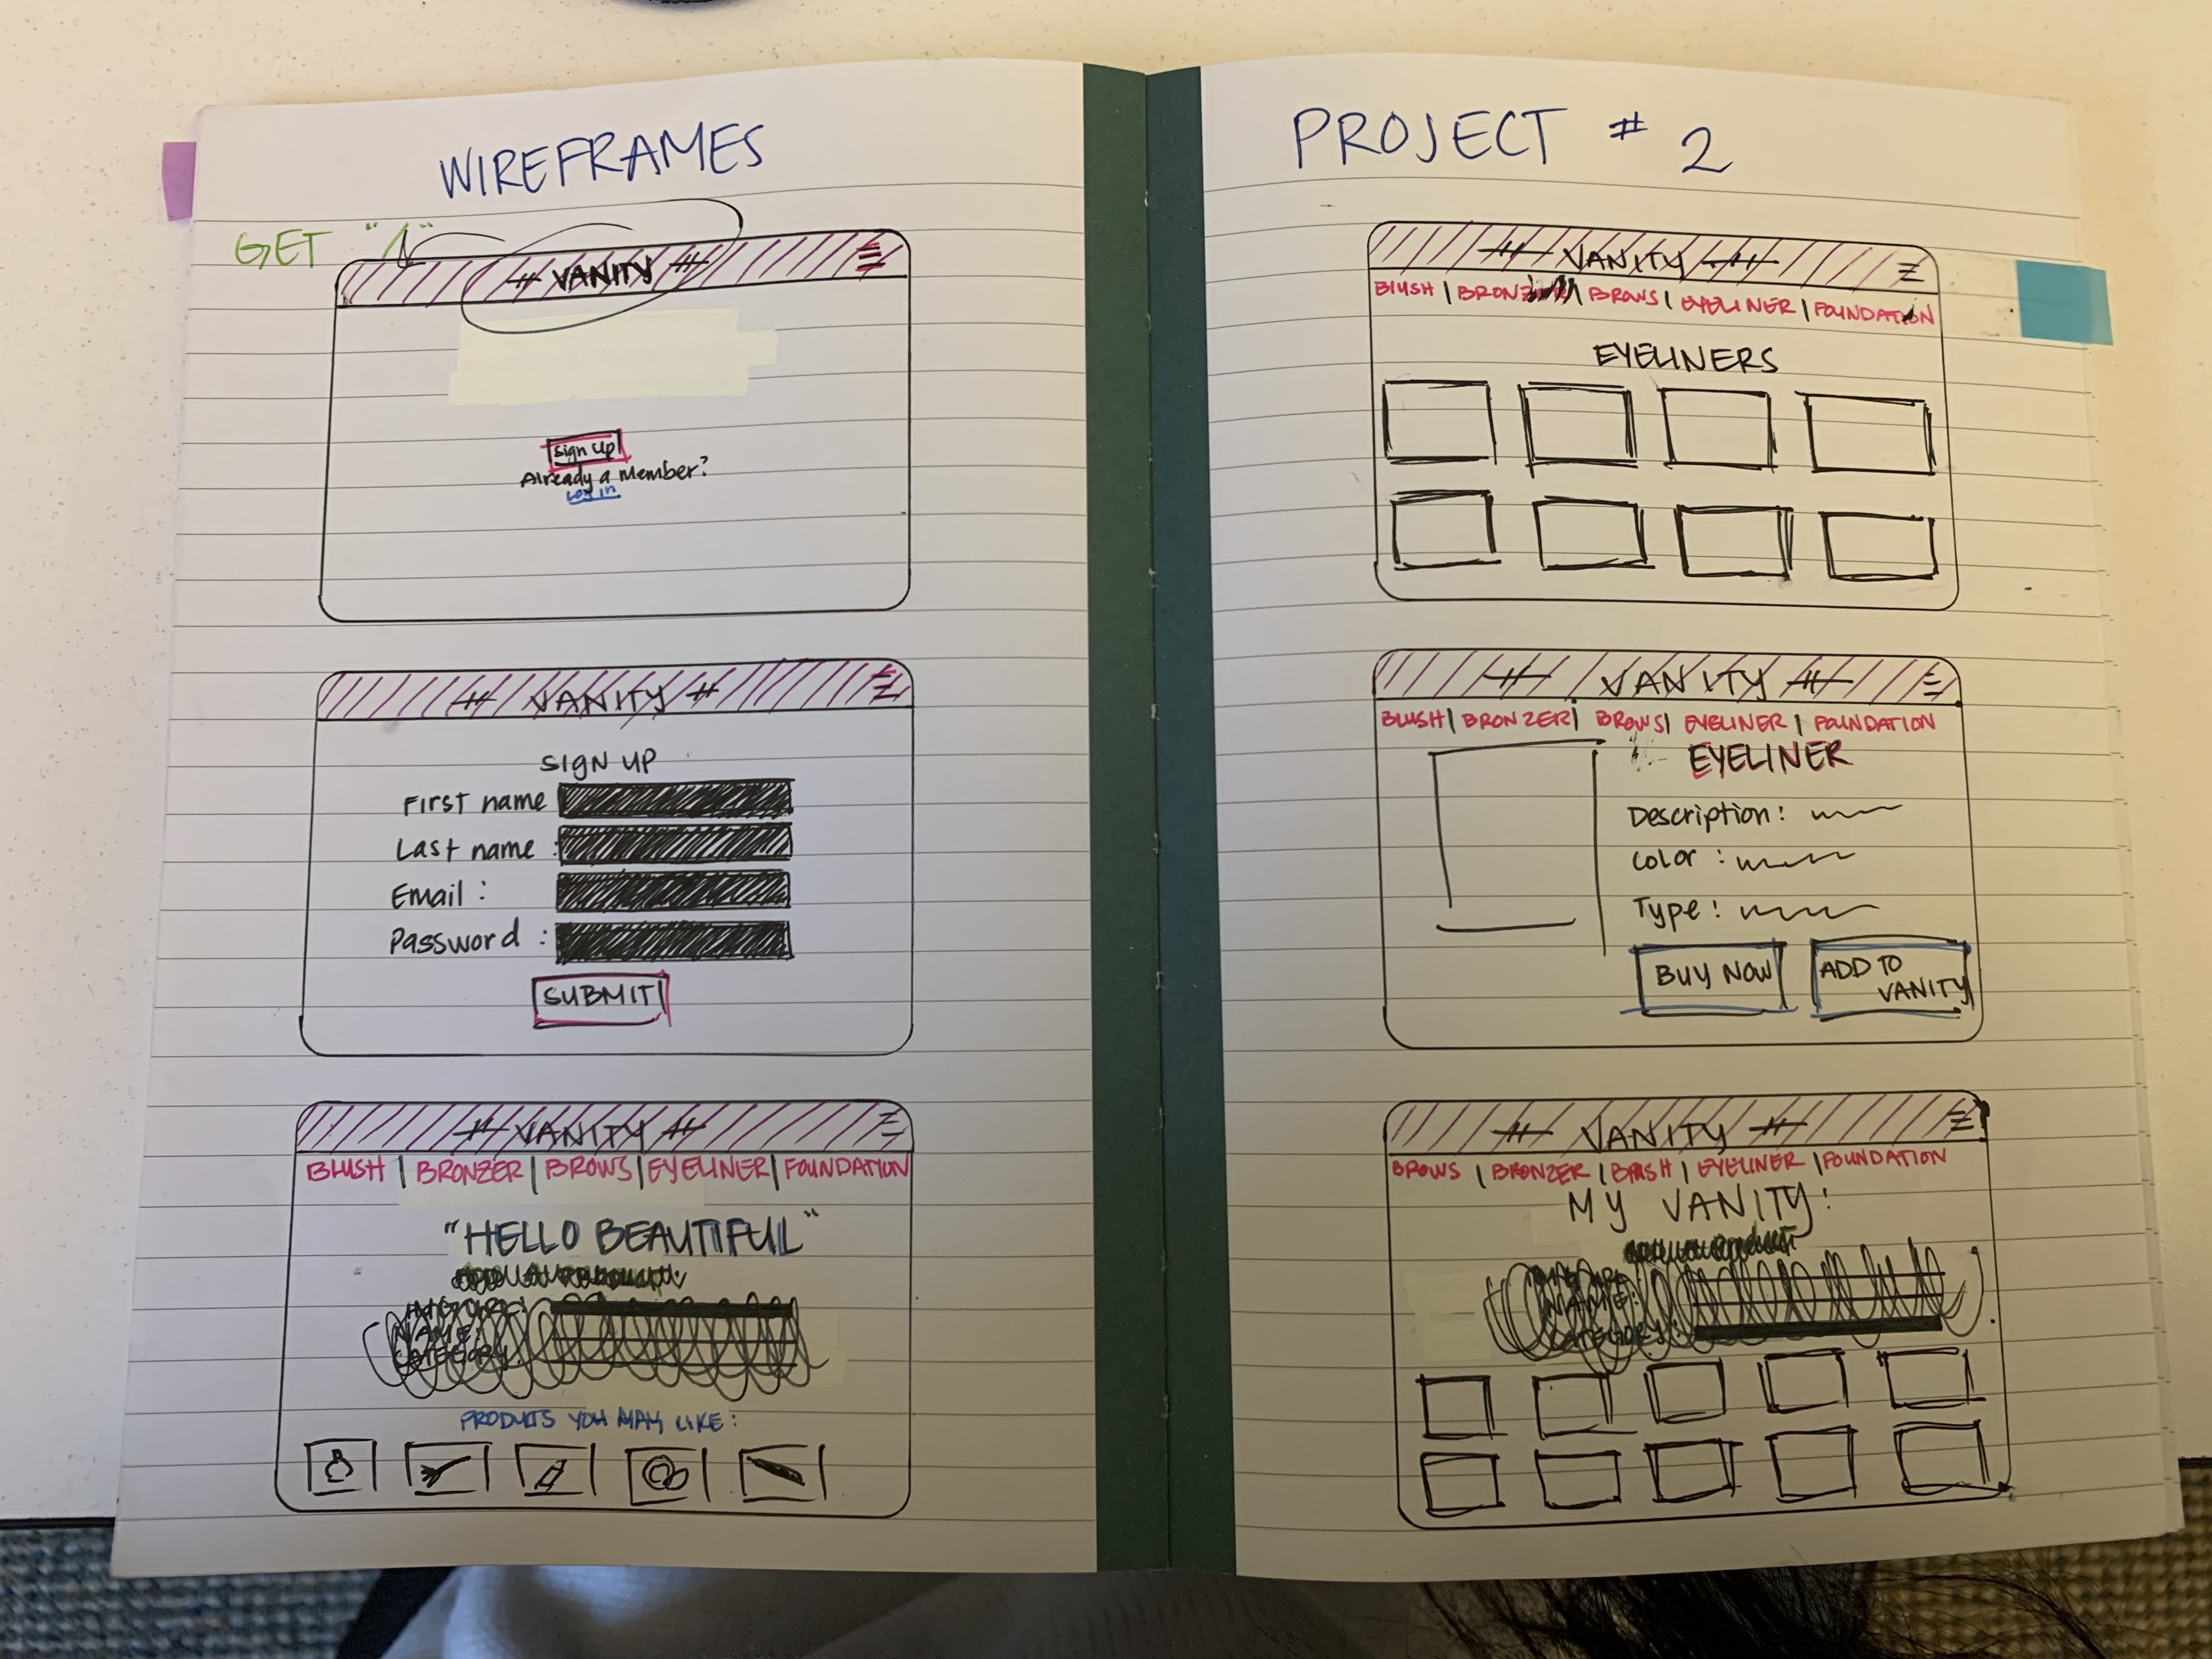 WIREFRAMES
GET "/"
VANITY
Sign up
Already a member?
Log in
VANITY
SIGN UP
First name
Last name :
Email :
Password :
SUBMIT
VANITY
BLUSH | BRONZER | BROWS | EYELINER | FOUNDATION
"HELLO BEAUTIFUL"
NAME:
CATEGORY:
PRODUCTS YOU MAY LIKE:
PROJECT # 2
VANITY
BLUSH | BRONZER | BROWS | EYELINER | FOUNDATION
EYELINERS
VANITY
BLUSH | BRONZER | BROWS | EYELINER | FOUNDATION
EYELINER
Description:
Color :
Type :
BUY NOW
ADD TO
VANITY
VANITY
BROWS | BRONZER | | EYELINER | FOUNDATION
MY VANITY:
NAME:
CATEGORY: